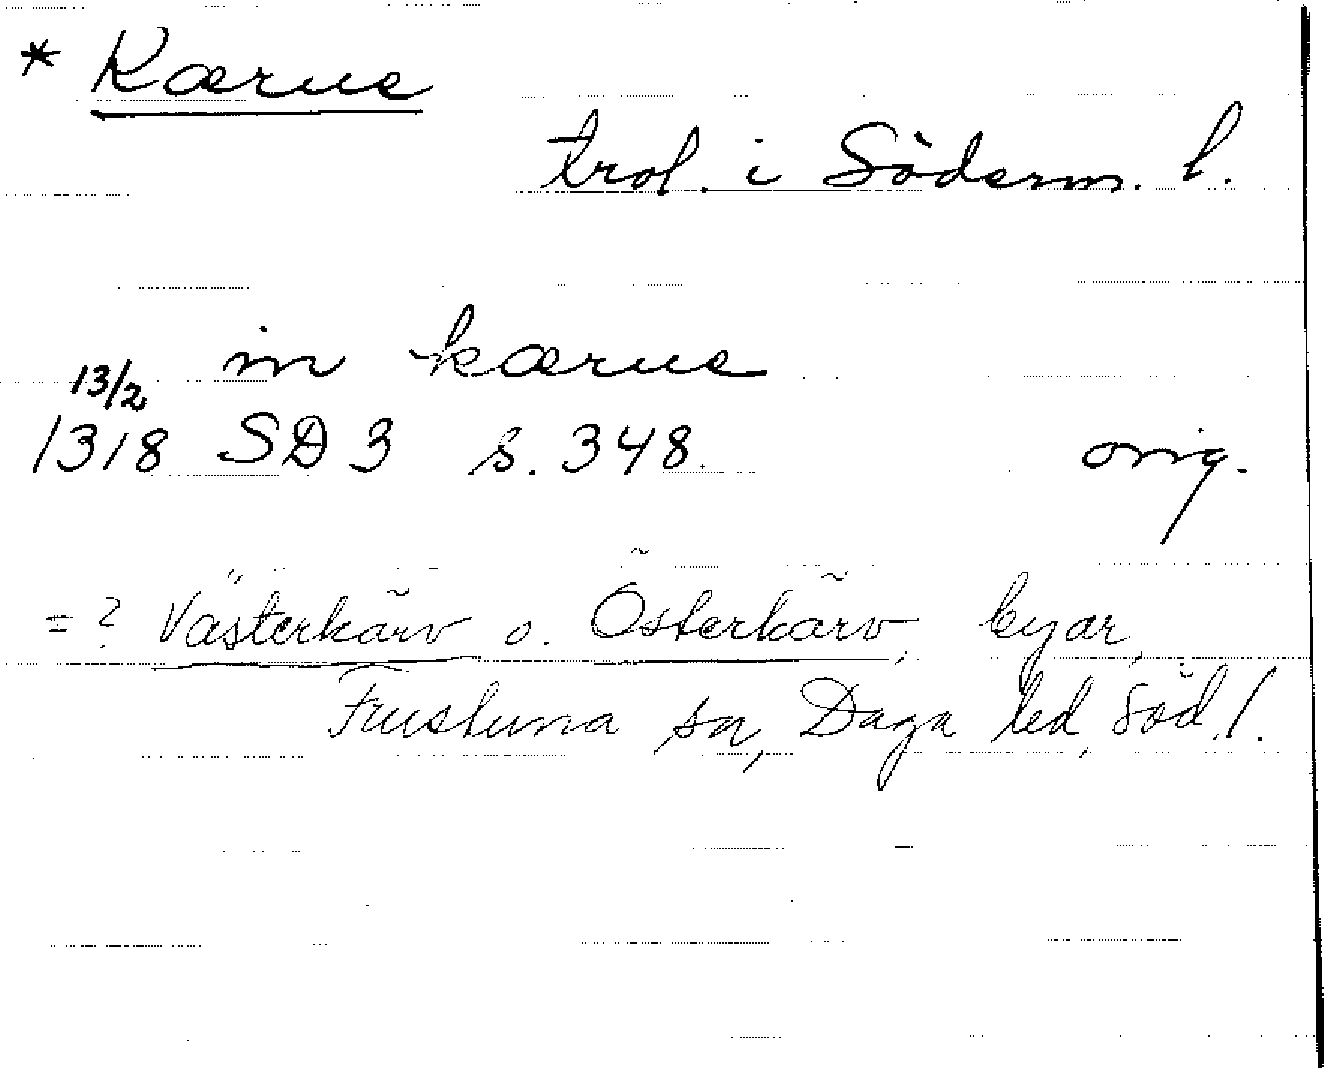 * Kærue
trol. i Söderm. l.
in kærue
13/2
1318 SD 3 s. 348. orig.
=? Västerkärv o. Österkärv, byar,
Frustuna sn, Daga hd, Söd. l.